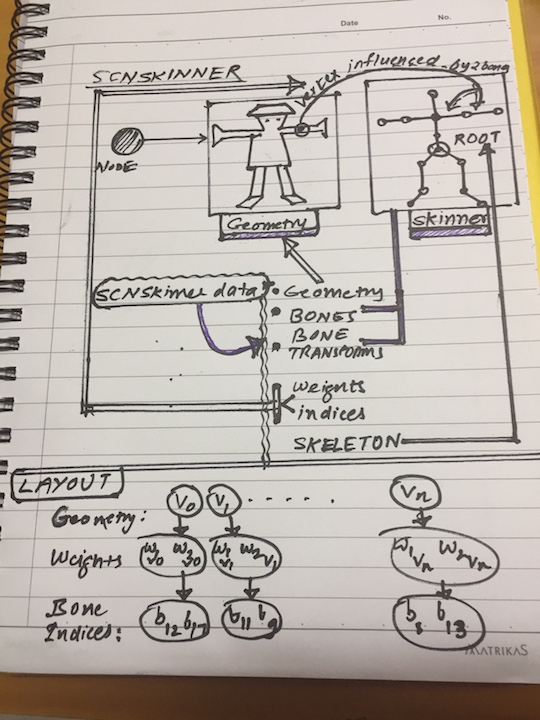 Date No.
SCNSKINNER
Vertex influenced by 2 bones
ROOT
NODE
Geometry
Skinner
SCNSkinner data
Geometry
BONES
BONE
TRANSFORMS
weights
indices
SKELETON
LAYOUT
Geometry: V0 V1 ...... Vn
Weights W1V0 W2V0 W1V1 W2V1 W1Vn W2Vn
Bone
Indices: b12 b17 b11 b9 b8 b13
MATRIKAS